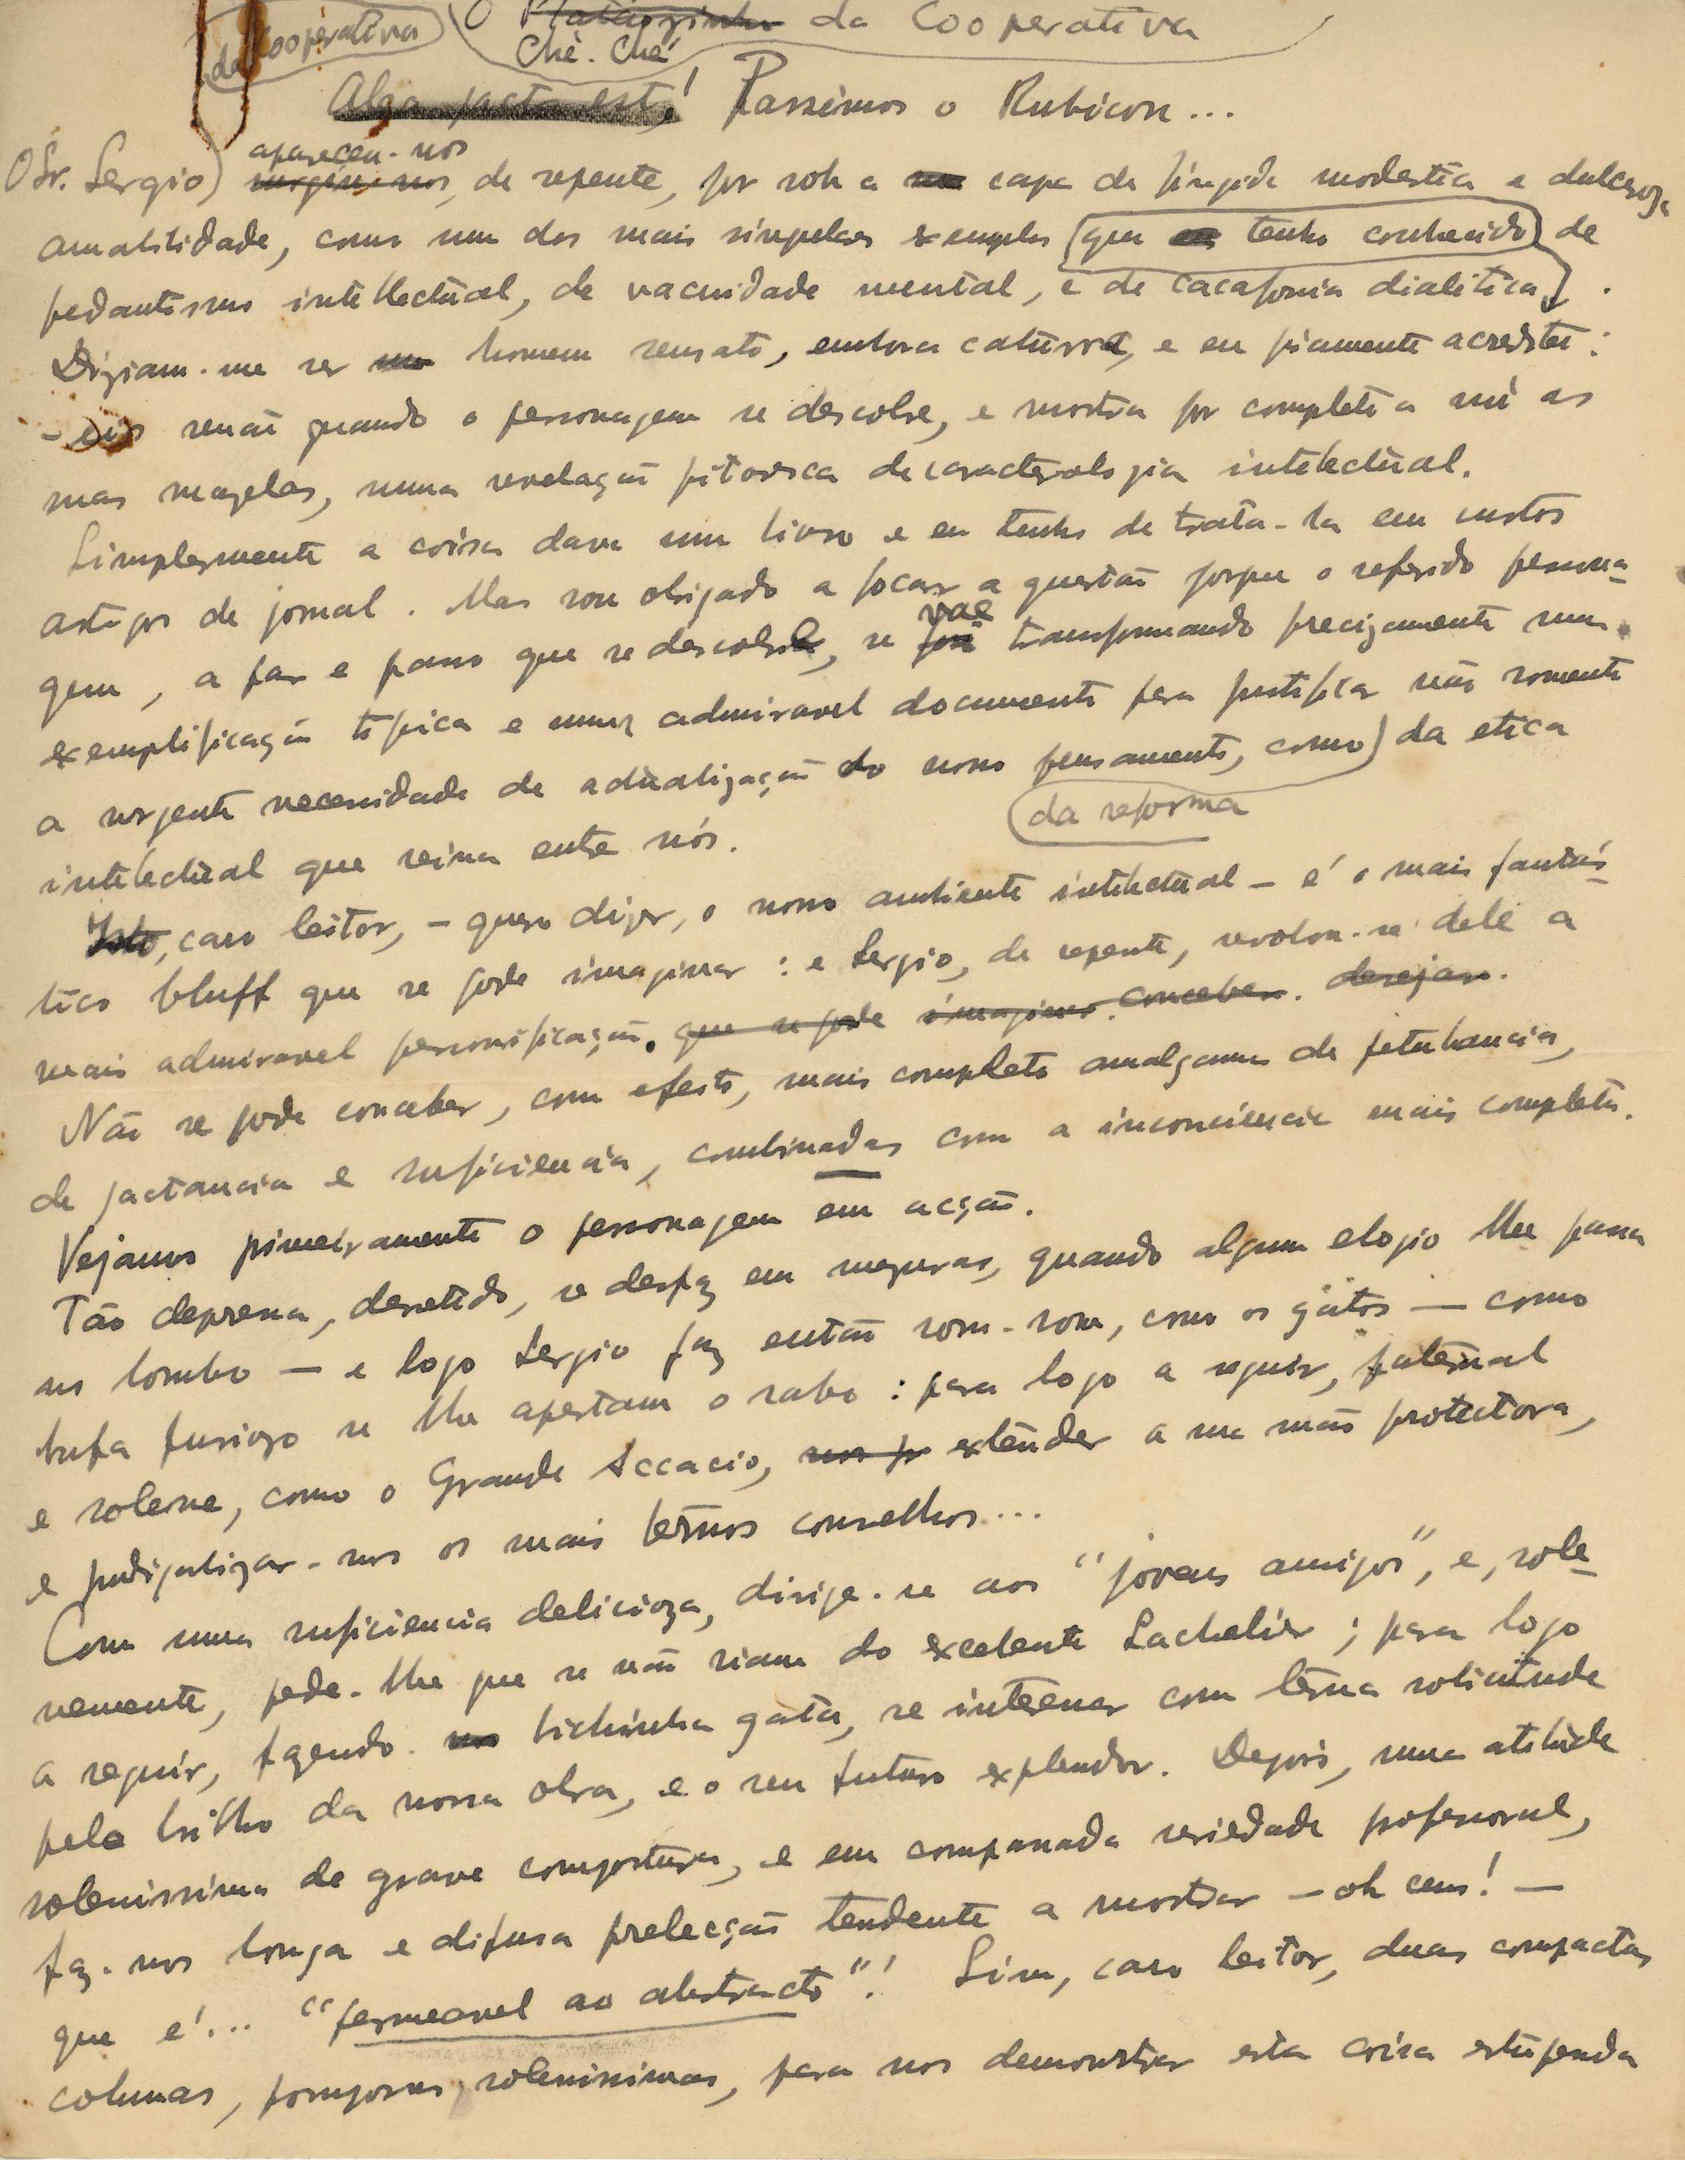 da Cooperativa
O Platãozinho da Cooperativa
Ché-Ché
Alea jacta est! Passêmos o Rubicon...
aparecen-nos
O Sr. Sergio) surgiu-nos, de repente, por sob a capa de fingida modestia e dulceroza
amabilidade, como um dos mais singulares exemplos (que tenho conhecido) de
pedantismo intellectual, de vacuidade mental, e de cacafonia dialitica.
Diziam-me ser homem sensato, embora caturra, e eu piamente acreditei:
- eis senão quando o personagem se descobre, e mostra por completo a nú as
suas mazelas, numa revelação pitoresca de caracterologia intelectual.
Simplesmente a coisa dava um livro e eu tenho de trata-la em curtos
artigos de jornal. Mas sou obrigado a focar a questão porque o referido persona-
vae
gem, a par e passo que se descobre, se foi transformando precizamente numa
exemplificação tipica e num admiravel documento para justificar não somente
a urgente necessidade de actualização do nosso pensamento, como) da etica
(da reforma
intelectual que reina entre nós.
Isto, caro leitor, - quero dizer, o nosso ambiente intelectual - é o mais fantás-
tico bluff que se pode imaginar: e Sergio, de repente, revelou-se dele a
mais admiravel personificação. que se pode imaginar. conceber. desejar.
Não se pode conceber, com efeito, mais completo amalgama de petulancia,
de jactancia e suficiencia, combinadas com a inconciencia mais completa.
Vejamos primeiramente o personagem em acção.
Tão depressa, derretido, se desfaz em mezuras, quando algum elogio lhe passa
no lombo — e logo Sergio faz então rom-rom, como os gatos — como
bufa furiozo se lhe apertam o rabo: para logo a seguir, paternal
e solene, como o Grande Accacio, extender a sua mão protectora,
e prodigalizar-nos os mais ternos conselhos...
Com uma suficiencia delicioza, dirige-se aos "jovens amigos", e, sole-
nemente, pede-lhe que se não riam do excelente Lachelier; para logo
a seguir, fazendo bichinha gata, se interessar com terna solicitude
pelo brilho da nossa obra, e o seu futuro explendor. Depois, numa atitude
solenissima de grave compostura, e em compassada seriedade professoral,
faz-nos longa e difusa prelecção tendente a mostrar — oh ceus! —
que é... "permeavel ao abstracto"! Sim, caro leitor, duas compactas
colunas, pomposas, solenissimas, para nos demonstrar esta coisa estupenda